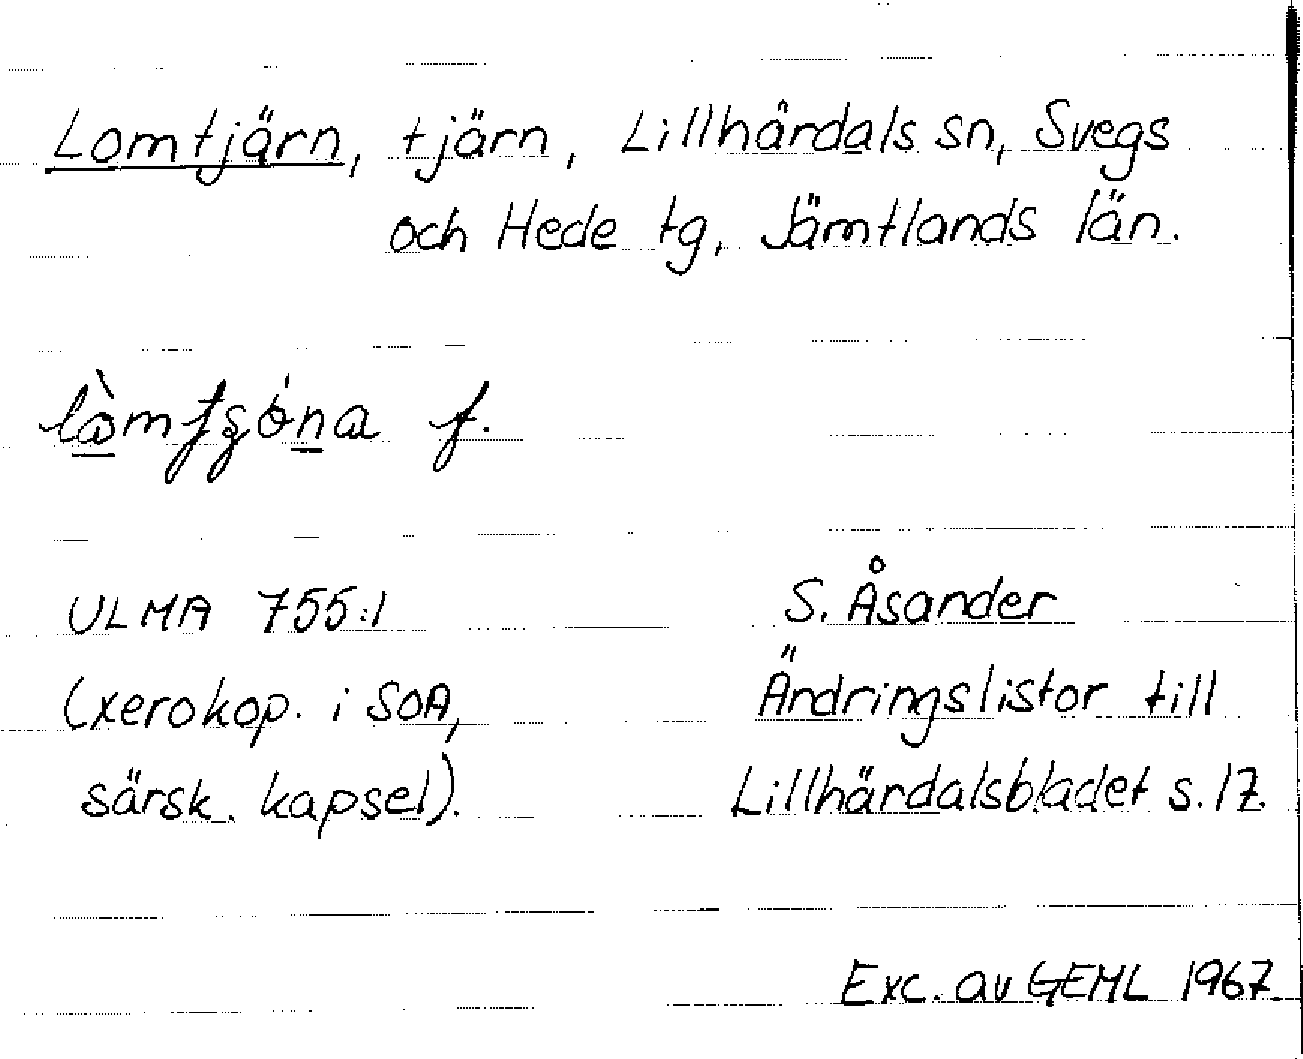 Lomtjärn, tjärn, Lillhärdals sn, Svegs
och Hede tg, Jämtlands län.
f.
ULMA 755:1
S. Åsander
(xerokop. i SOA,
Ändringslistor till
särsk. kapsel).
Lillhärdalsbladet s. 17.
Exc. av GEML 1967.